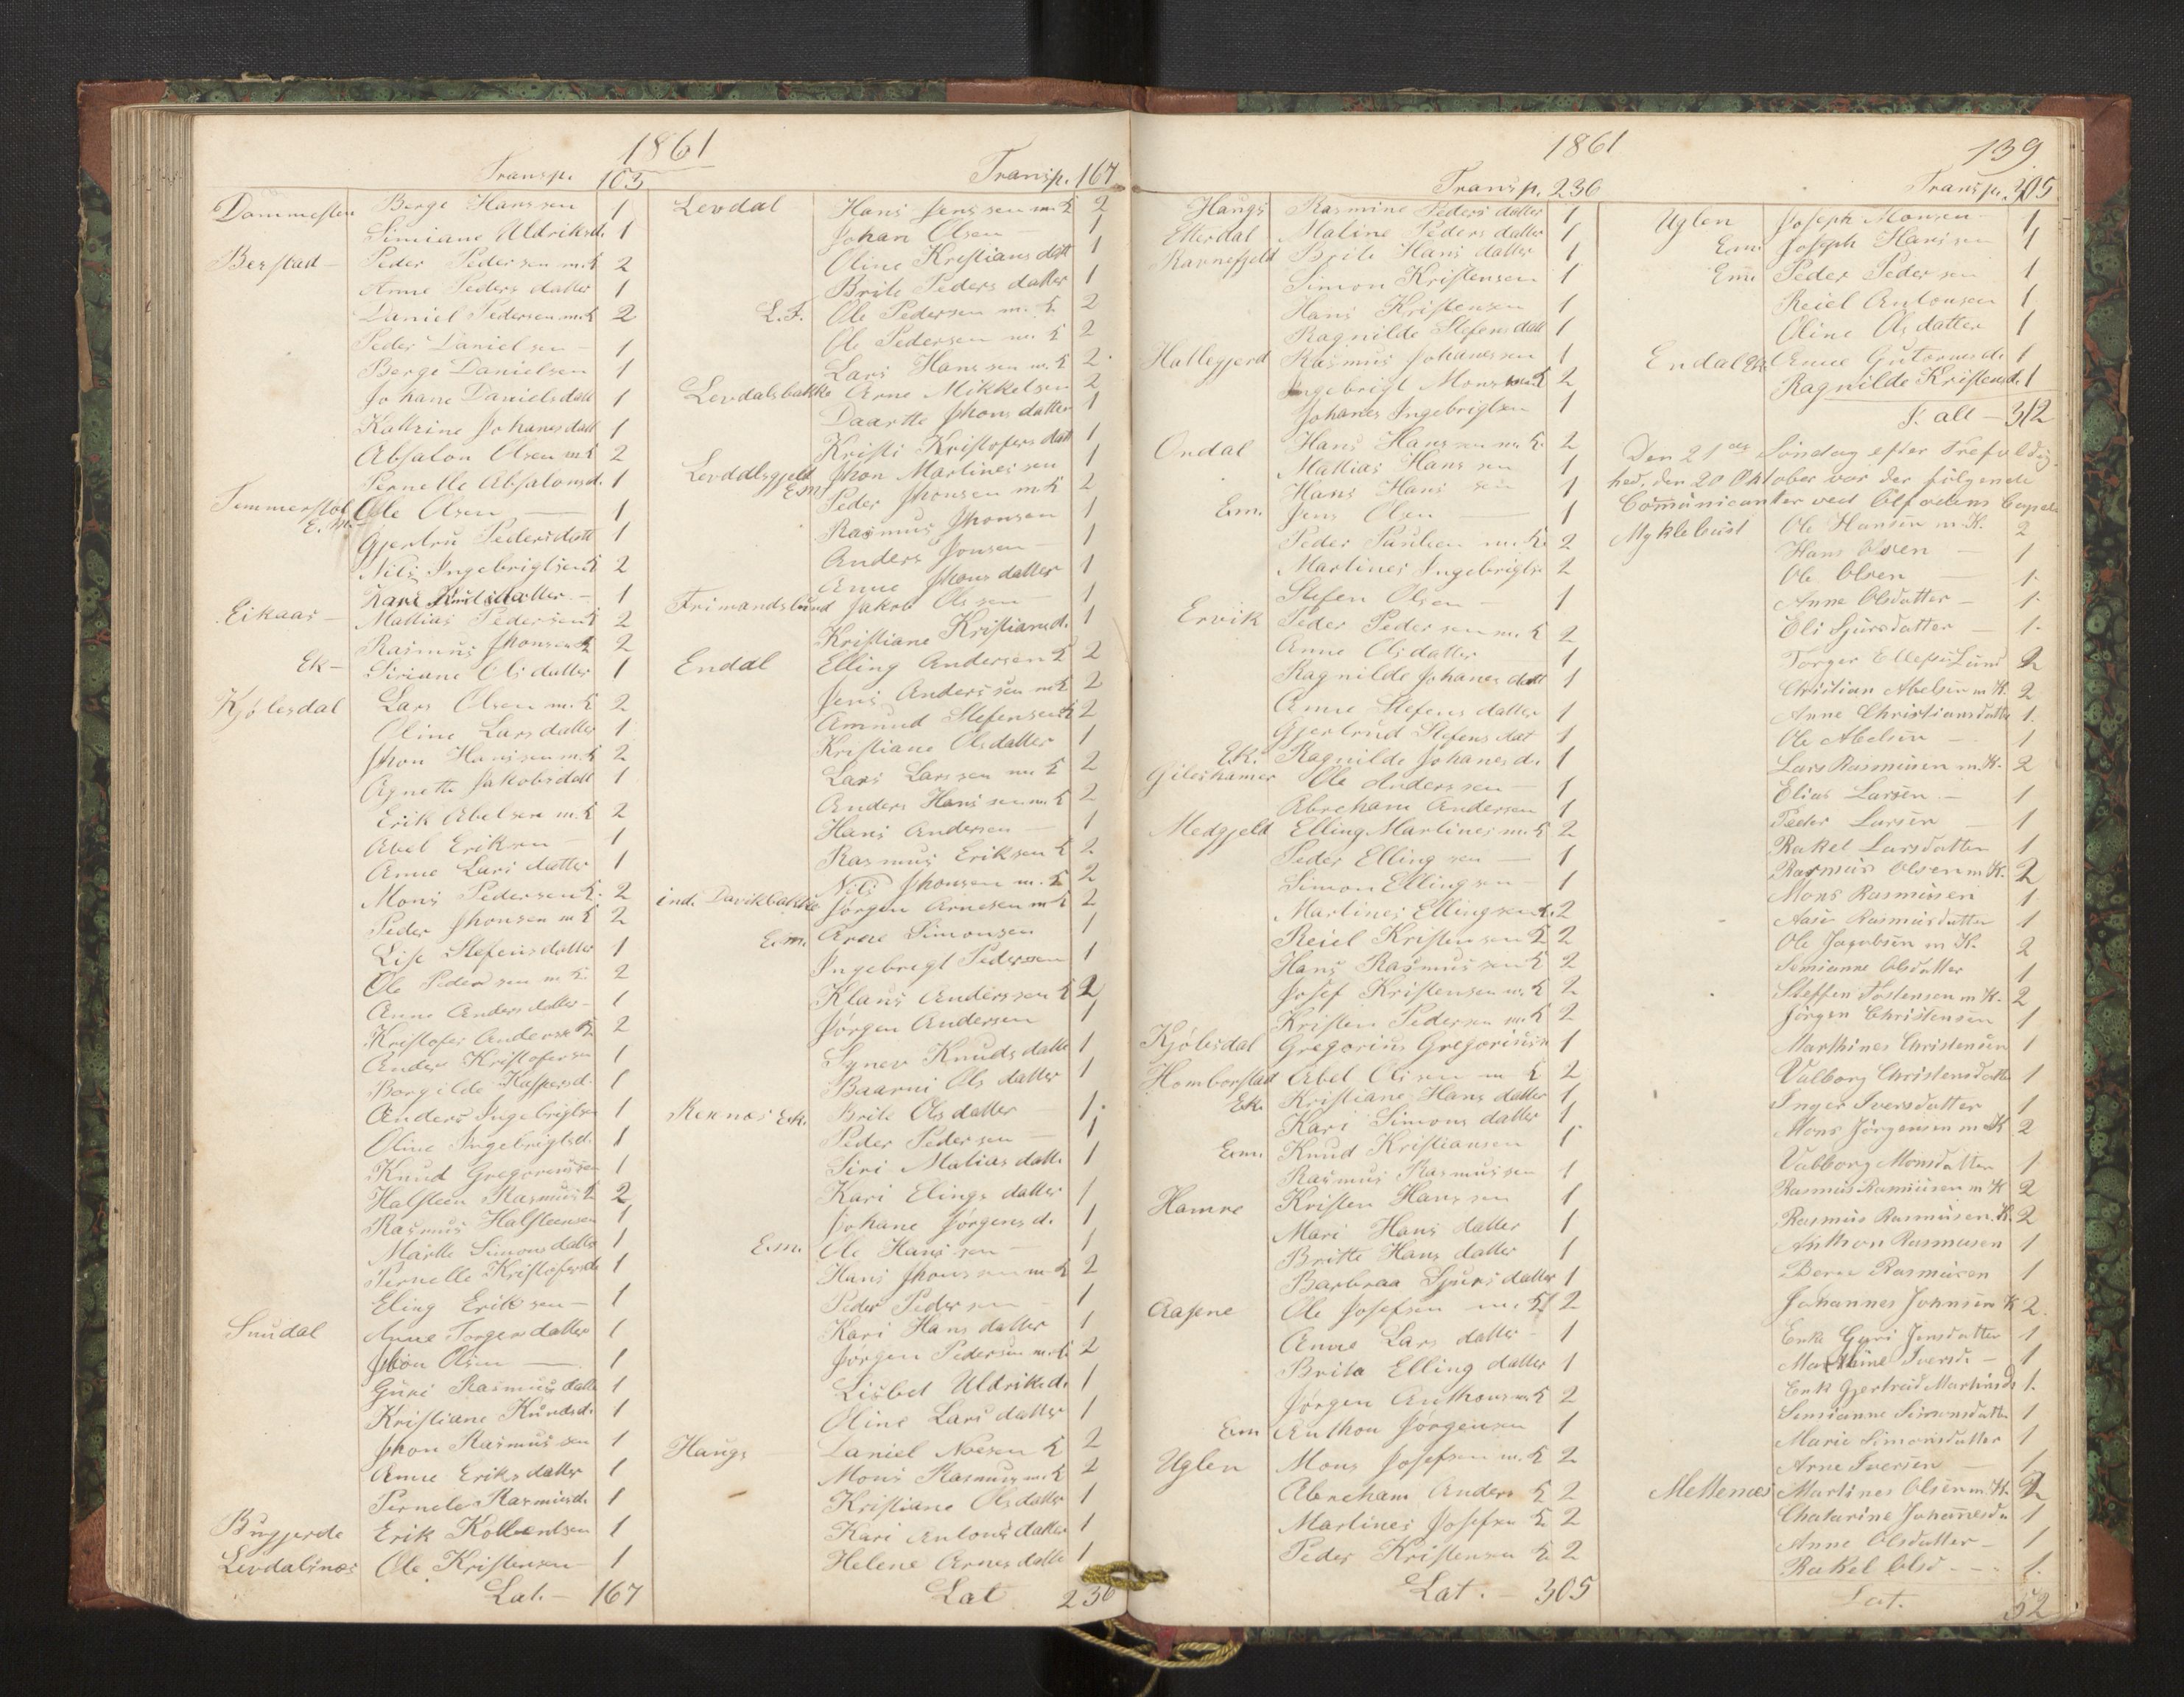 1861
Transp. 103
Dommesten Berge Hanssen 1
Simiane Uldriksd. 1
Berstad - Peder Pedersen m. K 2
Anne Peders datter 1
Daniel Pedersen m. K 2
Peder Danielsen - 1
Berge Danielsen 1
Johane Danielsdatt 1
Kattrine Johanesdatt 1
Absalon Olsen m. K 2
Pernelle Absalonsd. 1
Temmerstøl Ole Olsen - 1
E. M. Gjertru Pedersdatt 1
Nils Ingebrigtsen K 2
Kari datter - 1
Eikaas - Mattias Pedersen K 2
Rasmus Jhonsen K 2
Ek - Siriane Ols datter 1
Kjølesdal Lars Olsen m. K 2
Oline Lars datter 1
Jhon Hanssen m. K 2
Agnette Jakobsdatt 1
Erik Abelsen m. K 2
Abel Eriksen - 1
Anne Lars datter 1
Mons Pedersen K. 2
Peder Jhonsen m K 2
Lise Stefensdatter 1
Ole Pedersen m K. 2
Anne Anders datter - 1
Kristofer Andersen K 2
Anders Kristofersen 1
Borgilde Kaspersd. 1
Anders Ingebrigtsen 1
Oline Ingebrigtsd. 1
Knud Gregoriussen 1
Halsteen Rasmus K 2
Rasmus Halsteensen 1
Martte Simons datter 1
Pernelle Kristofersd 1
Eling Eriksen - 1
Sundal Anne Torgers datter 1
Jhon Olsen - 1
Guri Rasmus datt 1
Kristiane Knudsd. 1
Jhon Rasmussen 1
Anne Eriks datter 1
Pernele Rasmusd. 1
Bugjerde Erik Kolbentsen 1
Levdalsnæs Ole Kristensen - 1
Lat. - 167
Transp. 167
Levdal Hans Jenssen m. K 2
Johan Olsen 1
Oline Kristians datt 1
Brite Peders datter 1
L. F. Ole Pedersen m. K. 2
Ole Pedersen m. K 2
Lars Hanssen m. K 2
Levdalsbakke Arne Mikkelsen 2
Daartte Jhons datter 1
Kristi Kristofers datt 1
Levdalsgjeld Jhon Martinessen 1
Em Peder Jhonsen m K 2
Rasmus Jhonsen 1
Anders Jonsen - 1
Anne Jhons datter 1
Frimandslund Jakob Olssen - 1
Kristiane Kristiansd. 1
Endal Elling Andersen K 2
Jens Anderssen m K 2
Amund Stefensen K 2
Kristiane Olsdatter 1
Lars Larssen m. K 2
Anders Hanssen m. K 2
Hans Andersen - 1
Rasmus Eriksen K 2
Nils Jhonsen m. K 2
ind. Davikbakke Jørgen Arnesen m K 2
E.m. Arne Simonsen 1
Ingebregt Pederssen 1
Klaus Anderssen K 2
Jørgen Andersen 1
Synev Knuds datte 1
Baarni Ols datter 1
Reknæs E.k. Brite Ols datter 1
Peder Pedersen - 1
Siri Matias datt. 1
Kari Elings datter 1
Johane Jørgensd. 1
E.m. Ole Hanssen - 1
Hans Jhonssen m. K 2
Peder Pedersen - 1
Kari Hans datter 1
Jørgen Pedersen m. K 2
Lisbet Uldriksd. 1
Oline Lars datter 1
Haugs Daniel Noesen K 2
Mons Rasmuss m. K 2
Kristiane Ols datter 1
Kari Antons datter 1
Helene Arnes datte 1
Lat 236
1861
139
Transp. 236
Haugs Rasmine Peders datter 1
Etterdal Maline Peders datter 1
Ravnefjeld Brite Hans datter 1
Simon Kristensen 1
Hans Kristensen 1
Ragnilde Stefens datt 1
Hallegjerd Rasmus Johanessen 1
Ingebrigt Mons m. K 2
Johanes Ingebrigtsen 1
Ondal Hans Hanssen m. K. 2
Mattias Hanssen 1
Hans Hans sen 1
E.m. Jens Olsen - 1
Peder Paulsen m. K. 2
Martines Ingebrigtse 2
Stefen Olsen - 1
Ervik Peder Pedersen m. K 2
Anne Ols datter 1
Ragnilde Johanes datt 1
Anne Stefens datter 1
Gjertrud Stefens dat 1
E.k. Ragnilde Johanesd. 1
Gileshamer Ole Anderssen - 1
Abreham Andersen 1
Medgjeld Elling Martines m. K 2
Peder Ellingsen - 1
Simon Ellingsen - 1
Martines Ellingsen K. 2
Reiel Kristensen K 2
Hans Rasmussen K 2
Josef Kristensen m. K 2
Kristen Pedersen m. K 2
Kjølesdal Gregorius Gregoriusn 1
Homborstad Abel Olssen m K 2
E.k. Kristiane Hans datter 1
Kari Simons datter 1
E.m. Knud Kristiansen 1
Rasmus Rasmussen 1
Hamre Kristen Hanssen 1
Mari Hans datter 1
Britte Hans datter 1
Barbraa Sjurs datter 1
Aasene Ole Josefsen m. K 2
Anne Lars datter - 1
Brita Elling datter 1
Jørgen Anthons m. K 2
E.m Anthon Jørgensen 1
Uglen Mons Josefsen m. K 2
Abreham Anders K 2
Martines Josefsen K 2
Peder Kristensen K 2
Lat. - 305
Transp. 305
Uglen Joseph Monsen - 1
Em. Joseph Hanssen 1
Em. Peder Pedersen 1
Reiel Antonsen 1
Oline Ols datter 1
Endal Ek. Anne Gutormsd. 1
Ragnilde Kristensd. 1
I. all - 312
Den 21de Søndag efter Trefoldig-
hed, den 20 Oktober var der følgende
Communicanter ved Olfodens Capel
Myklebust Ole Hansen m. K. 2
Hans Olsen - 1
Ole Olsen - 1
Anne Olsdatter - 1
Eli Sjursdatter - 1
Torger Lund 2
Christian Abelsen m K. 2
Anne Christiansdatte 1
Ole Abelsen - 1
Lars Rasmusen m. K. 2
Elias Larsen - 1
Peder Larsen - 1
Rakel Larsdatter 1
Rasmus Olsen m K. 2
Mons Rasmusen 1
Aase Rasmusdatter 1
Ole Jacobsen m K. 2
Simianne Olsdatter 1
Steffen Tostensen m K. 2
Jörgen Christensen 1
Marthines Christensen 1
Valborg Christensdatte 1
Inger Iversdatter 1
Mons Jörgensen m K 2
Valborg Monsdatter 1
Rasmus Rasmusen m K 2
Rasmus Rasmusen. K. 2
Anthon Rasmusen 1
Berne Rasmusen 1
Johannes Johnsen K 2
Enke Guri Jensdatter 1
Marthine Iversd. - 1
Enk Gjertrud Marthinsd 1
Simianne Simonsdatte 1
Marie Simonsdatter 1
Arne Iversen - 1
Mettenæs Martines Olsen m. K. 2
Chatarine Johannesda 1
Anne Olsdatter - 1
Rakel Olsd - - 1
Lat. 52